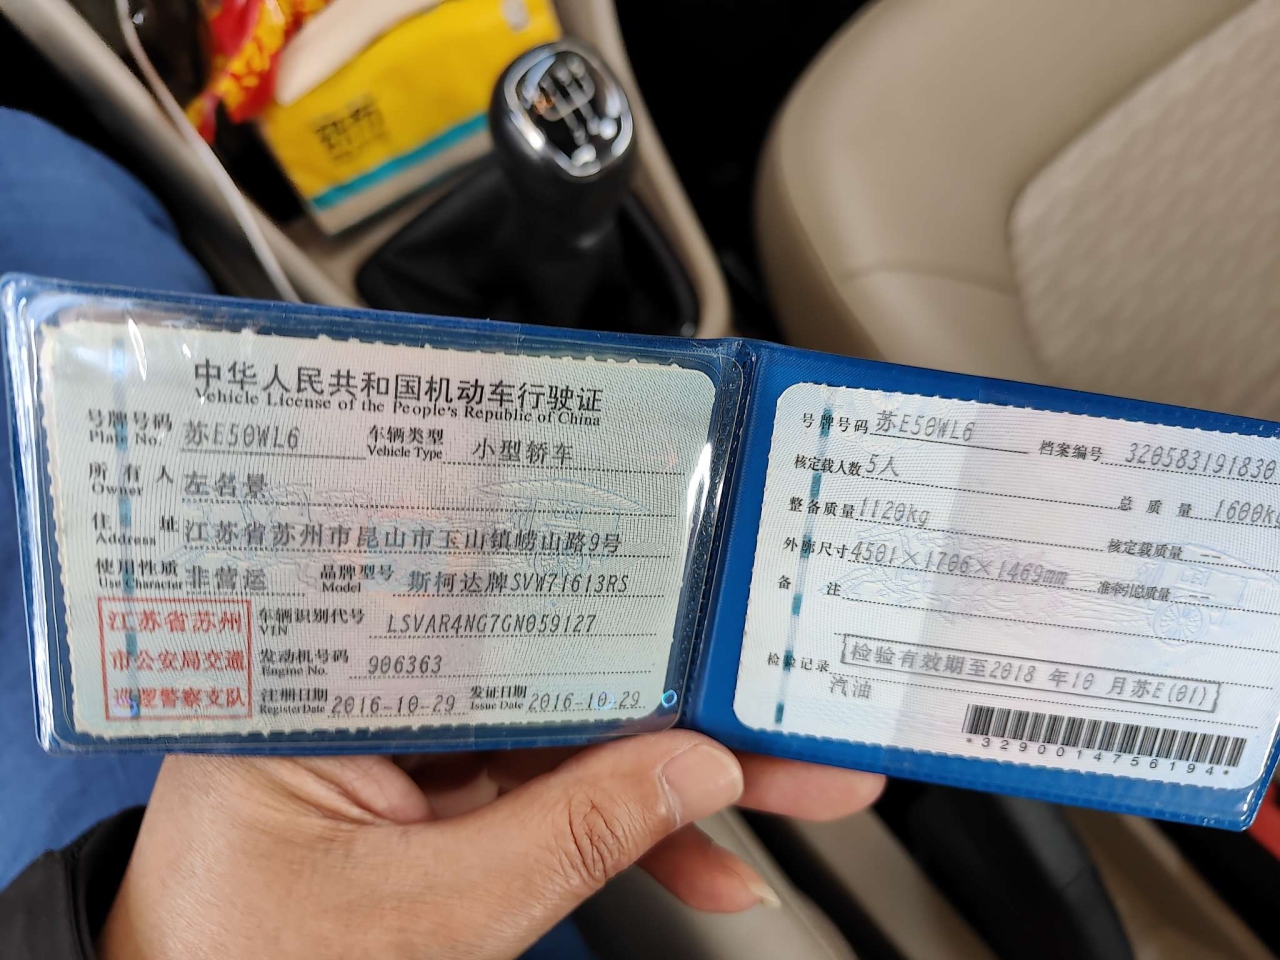 中华人民共和国机动车行驶证
Vehicle License of the People's Republic of China
号牌号码 苏E50WL6 车辆类型 小型轿车
Plate No. Vehicle Type
所有人 左茗景
Owner
住址 江苏省苏州市昆山市玉山镇崂山路9号
Address
使用性质 非营运 品牌型号 斯柯达牌SVW71613RS
Use Character Model
江苏省苏州
市公安局交通
巡逻警察支队
车辆识别代号 LSVAR4NG7GN059127
VIN
发动机号码 906363
Engine No.
注册日期 2016-10-29 发证日期 2016-10-29
Register Date Issue Date
号牌号码 苏E50WL6 档案编号 320583191830
核定载人数 5人 总质量 1600k
整备质量 1120kg 核定载质量 --
外廓尺寸 4501×1706×1469mm 准牵引总质量 --
备注
检验记录 检验有效期至2018 年10 月苏E(01)
汽油
*3290014756194*